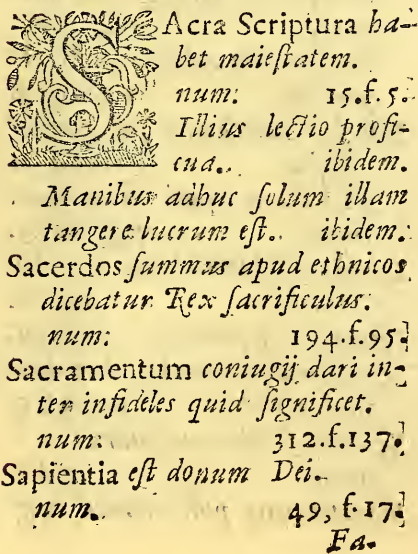 SAcra Scriptura ha-
bet maiestatem.
num: 15.f.5.
Illius lectio profi-
cua. ibidem.
Manibus adhuc solum illam
tangere lucrum est. ibidem.
Sacerdos summus apud ethnicos
dicebatur Rex sacrificulus.
num: 194.f.95.
Sacramentum coniugij dari in-
ter infideles quid significet.
num: 312.f.137.
Sapientia est donum Dei.
num. 49, f.17.
Fa-